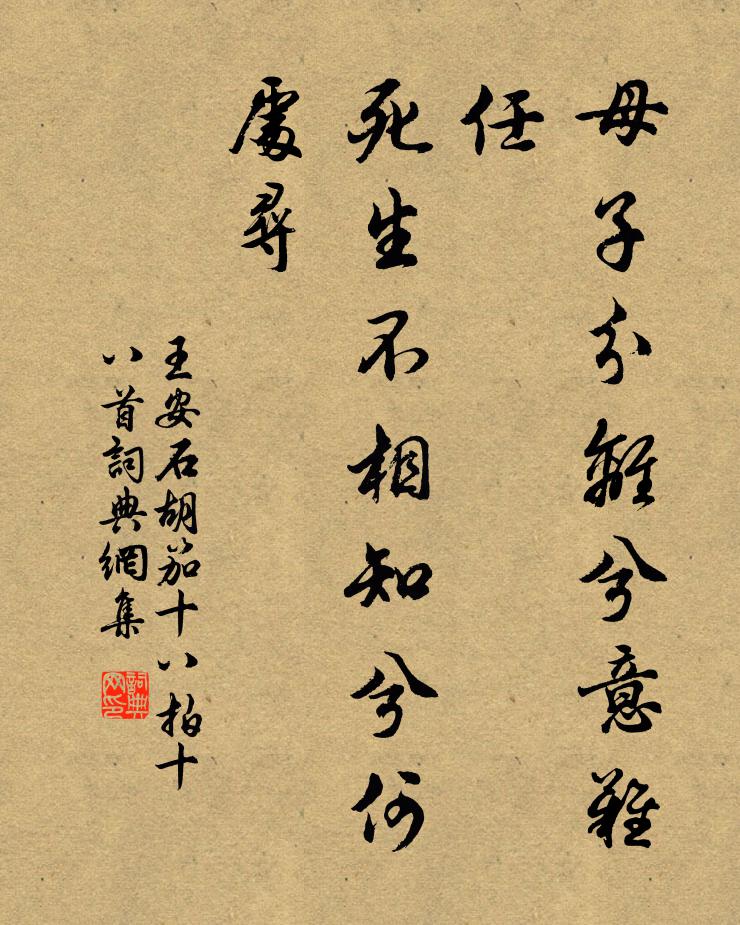 母子分離兮意難
任
死生不相知兮何
處尋
王安石胡笳十八拍十
八首詞典網集
詞典
网印